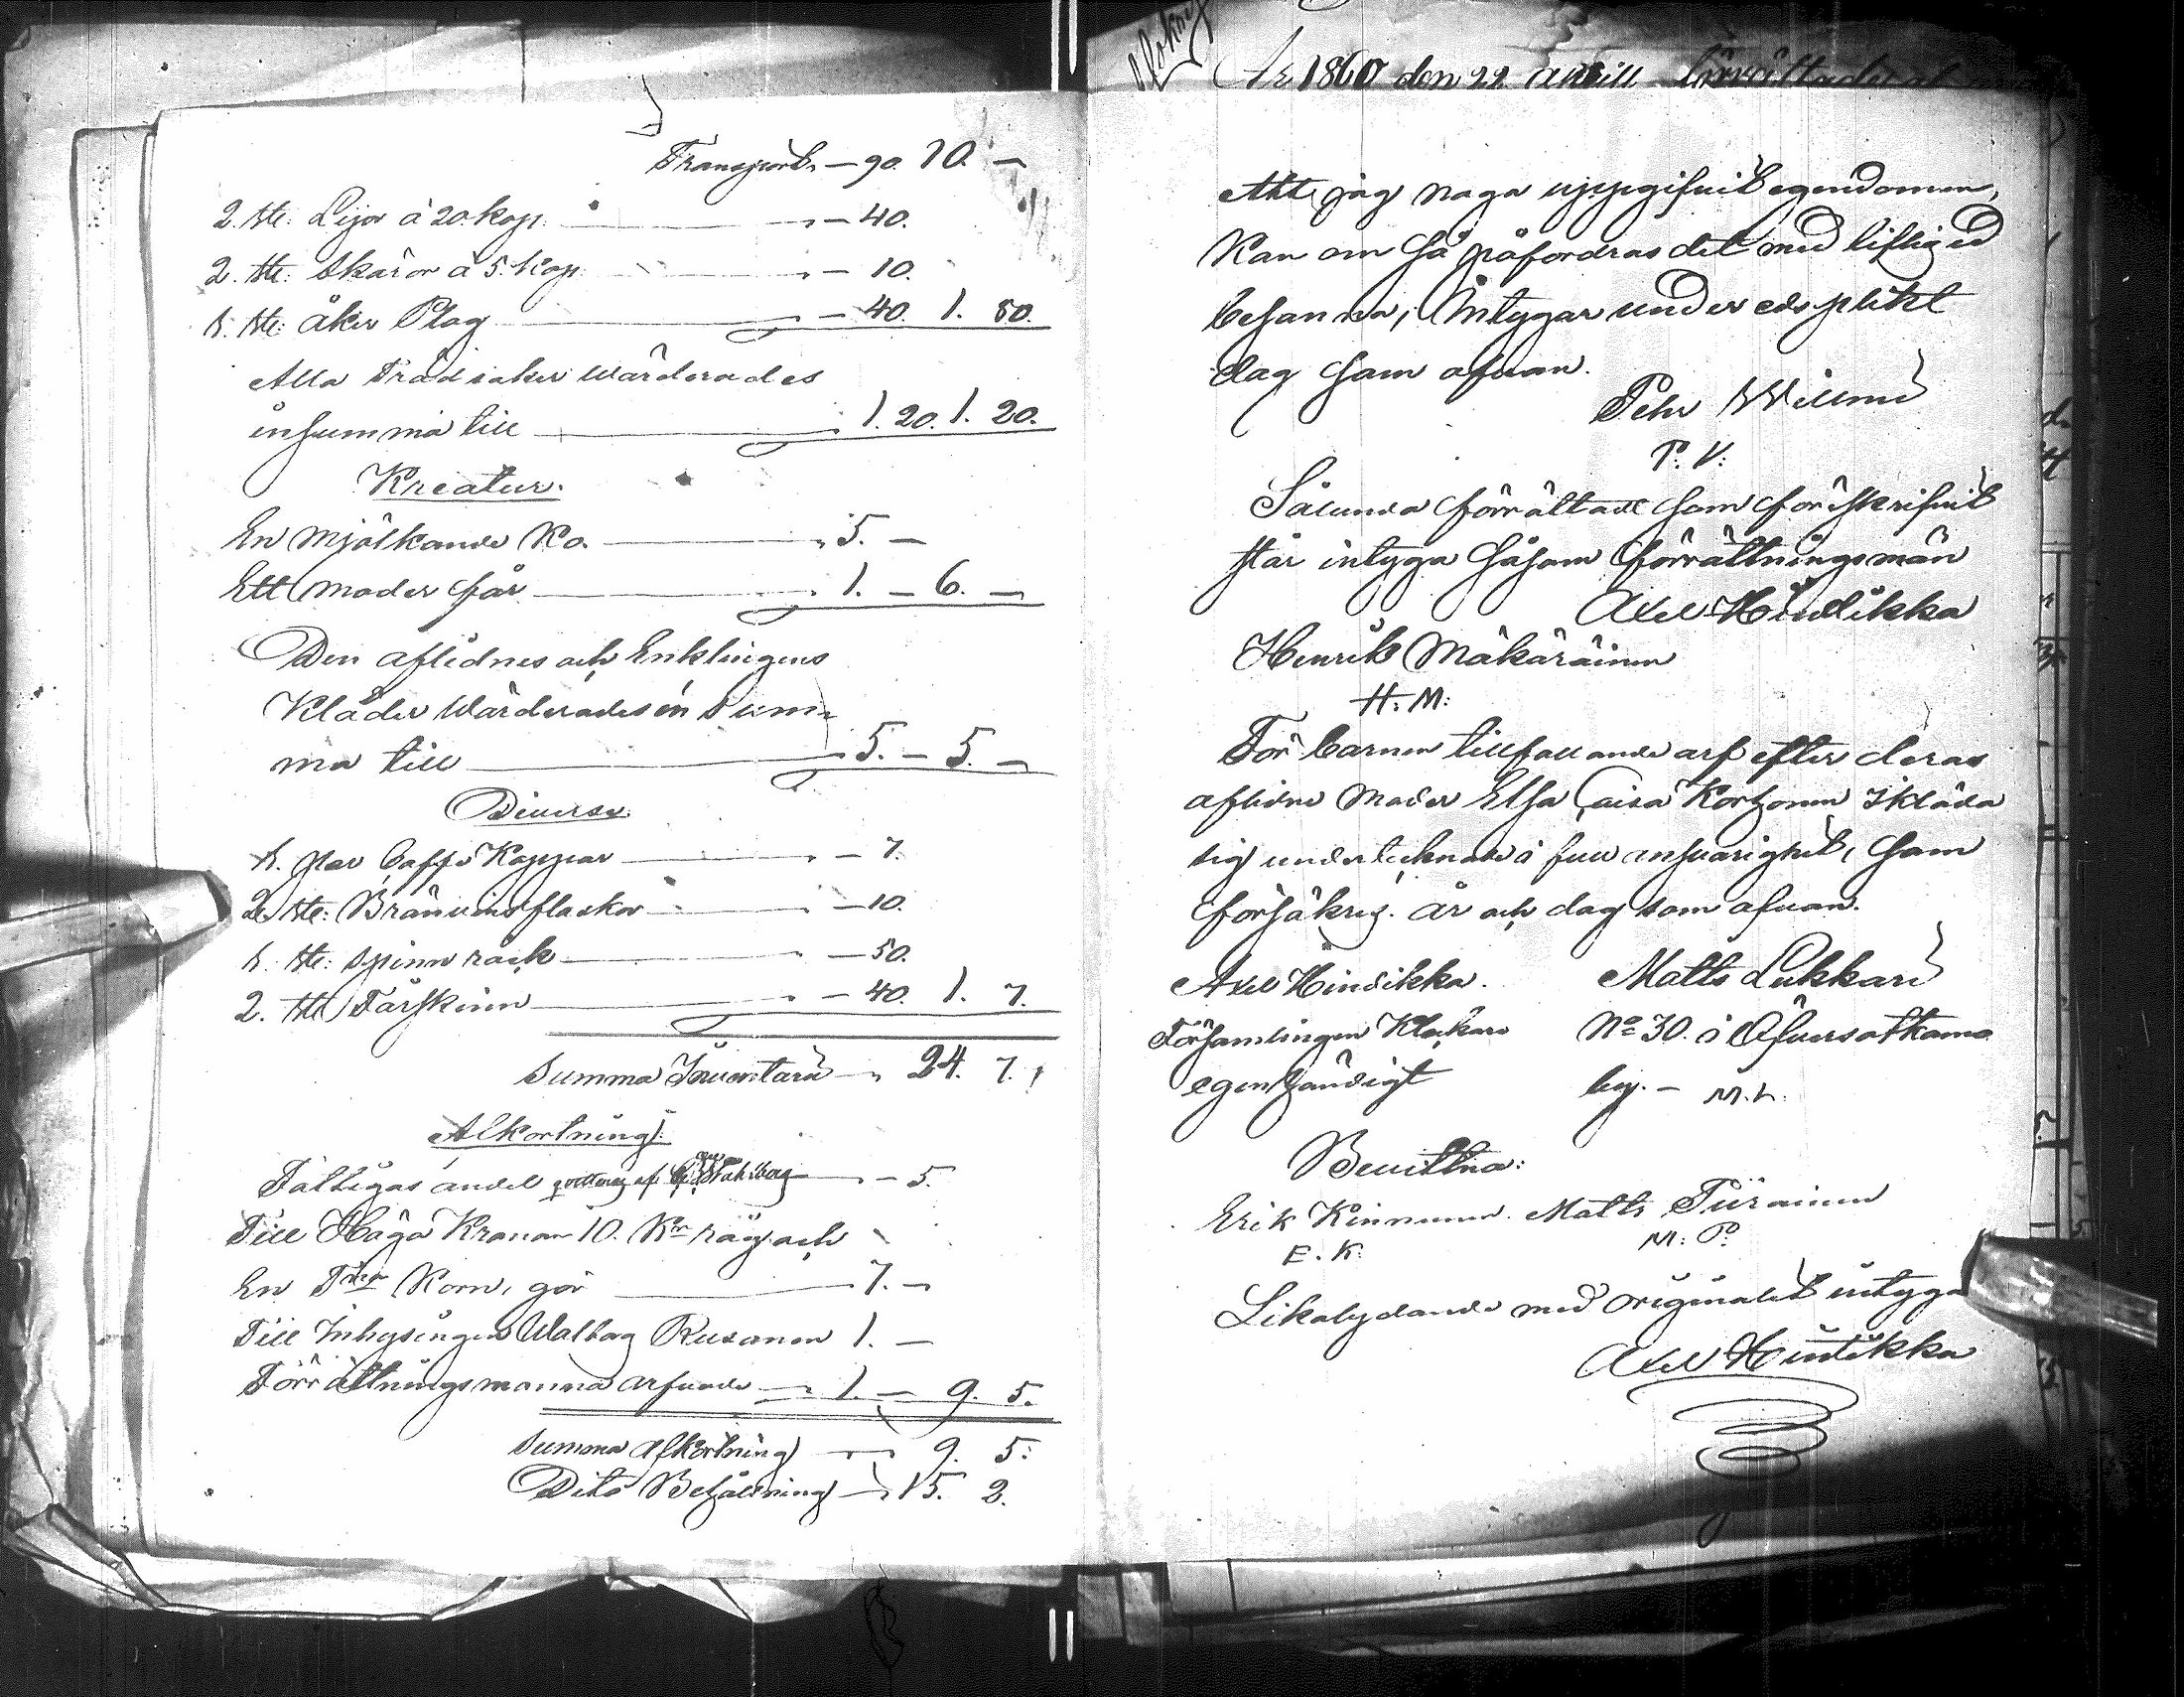 Transport. — 90. 10. —
2. ste: Lijor á 20. kop. — 40.
2. ste: Skäror á 5. Kop. — 10.
1. ste: åker Plog — 40. 1. 80.
Alla Trädsaker wärderades
insumma till 1. 20. 1. 20.
Kreatur.
En Mjölkande Ko. 5. —
Ett moder får 1. — 6. —
Den aflidnes och Enklingens
Kläder Wärderades en Sum-
ma till 5. — 5. —
Diverse
1. par Caffe Koppar — 7.
2. ste: Bränvins flaskor — 10.
1. ste: Spinn råck — 50.
2. ste Fårskinn — 40. 1. 7.
Summa Inventarii 24. 7.
Afkortning:
Fattigas andel qvitteras af Stahlberg — 5.
Till Höga Kronan 10. Kr råg och
En Korn, gör 7. —
Till Inhysingen Walborg Rusanen 1. —
Förrättningsmanna arfvode 1. — 9. 5.
Summa Afkortning 9. 5:
Dito Behållning 15. 2.
År 1860 den 22. April förrättades
Att jag noga uppgifvit egendomen,
Kan om så påfordras det med liflig ed
besanna, Intygar under edsplikt
dag som ofvan.
Pehr
P. V:
Sålunda förrättadt som föreskrifvit
står intyga såsom förrättningsmän
Axel Hindikka
Henrik Mäkäräinen
H. M:
För barnen tillfallande arf efter deras
aflidne Moder Elsa Caisa Korhonen Ikläda
sig undertecknade i full ansvarighet, som
försäkras. år och dag som ofvan.
Axel Hindikka. Matts Lukkari
Församlingens Klockare No 30. i Öfversotkamo
egenhändigt by. — M. L.
Bevittna:
Erik Kinnunen. Matts Piirainen
E. K. M: P.
Likalydande med Originalet intygar
Axel Hindikka